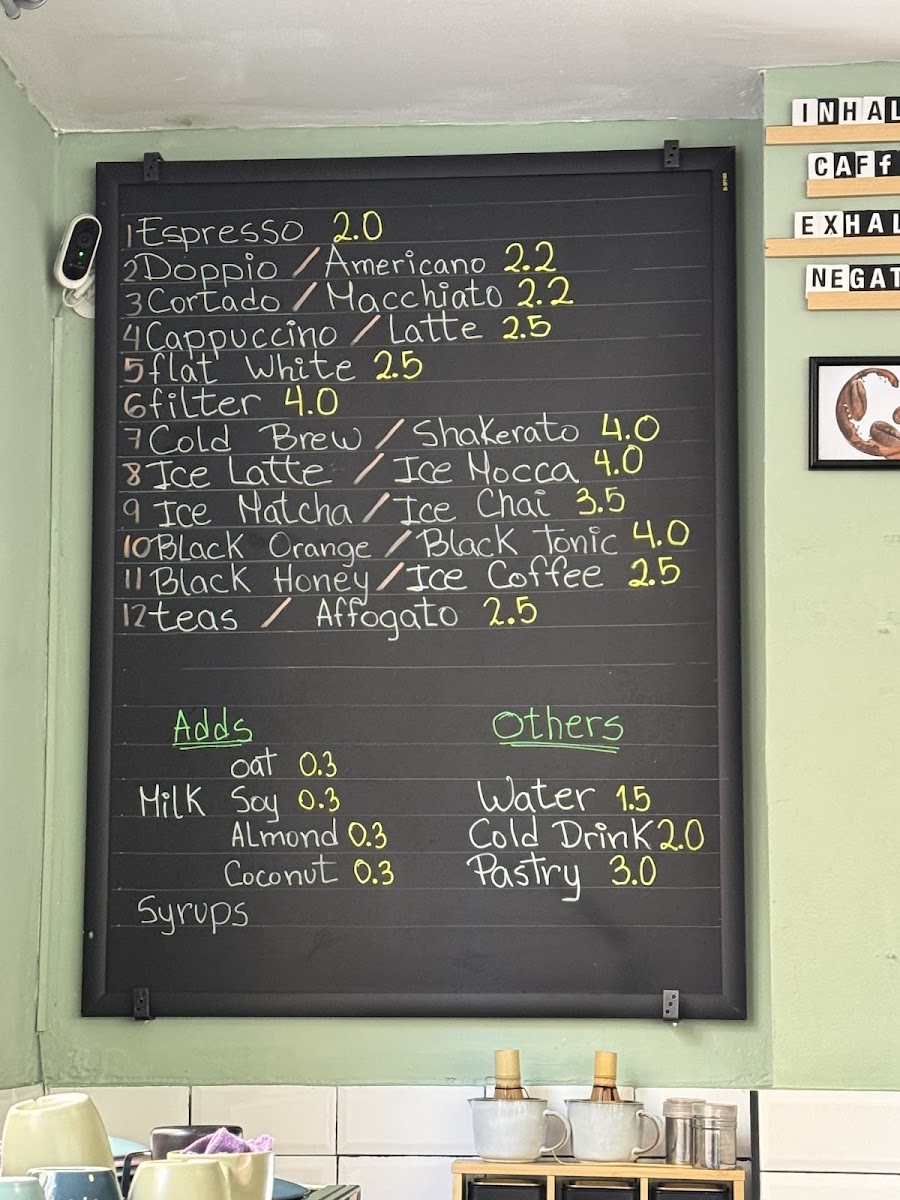 1 Espresso 2.0
2 Doppio / Americano 2.2
3 Cortado / Macchiato 2.2
4 Cappuccino / Latte 2.5
5 flat White 2.5
6 filter 4.0
7 Cold Brew / Shakerato 4.0
8 Ice Latte / Ice Mocca 4.0
9 Ice Matcha / Ice Chai 3.5
10 Black Orange / Black Tonic 4.0
11 Black Honey / Ice Coffee 2.5
12 teas / Affogato 2.5
Adds
oat 0.3
Milk Soy 0.3
Almond 0.3
Coconut 0.3
Syrups
Others
Water 1.5
Cold Drink 2.0
Pastry 3.0
INHAL
CAFf
EXHAL
NEGAT